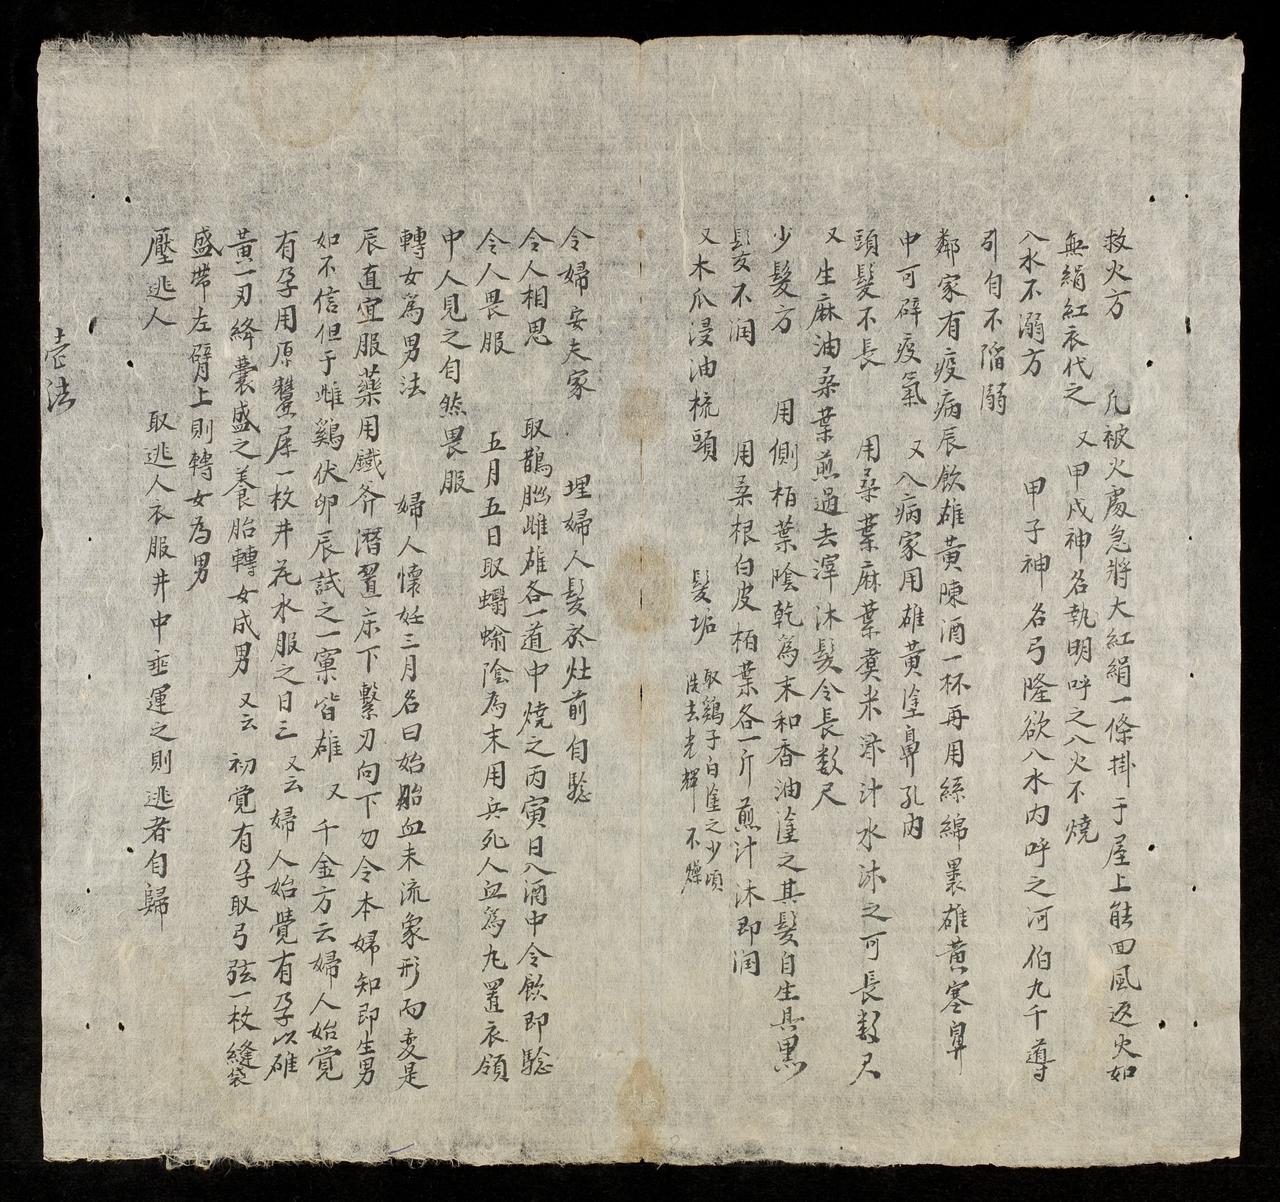 救火方　凡被火處急將大紅絹一條掛于屋上能回風返火如
無絹紅衣代之　又甲戌神名執明呼之入火不燒
入水不溺方　甲子神名弓隆欲入水内呼之河伯九千導
引自不陷溺
鄰家有疫病辰飲雄黄陳酒一杯再用絲綿裹雄黄塞鼻
中可辟疫氣　又入病家用雄黄塗鼻孔内
頭髮不長　用桑葉麻葉煑米泔汁水沐之可長数尺
又　生麻油桑葉煎過去滓沐髮令長数尺
少髮方　用側栢葉陰乾為末和香油塗之其髮自生且黒
髮不潤　用桑根白皮栢葉各一斤煎汁沐即潤
又木瓜浸油梳頭　髮垢　取鷄子白塗之少頃
洗去光輝不燥
令婦安夫家　埋婦人髮於灶前自騐
令人相思　取鵲腦雌雄各一道中燒之丙寅日入酒中令飲即騐
令人畏服　五月五日取蠮螉陰為末用兵死人血為丸置衣領
中人見之自然畏服
轉女為男法　婦人懷妊三月名曰始胎血未流象形而变是
辰直宜服藥用鐵斧潛置床下繫刃向下勿令本婦知即生男
如不信但于雌鷄伏卵辰試之一窠皆雄　又　千金方云婦人始覺
有孕用原蠶屎一枚井花水服之日三　又云　婦人始覺有孕以雄
黄一刃絳囊盛之養胎轉女成男　又云　初覚有孕取弓弦一枚縫袋
盛帶左臂上則轉女為男
壓逃人　取逃人衣服井中垂運之則逃者自歸
壱法